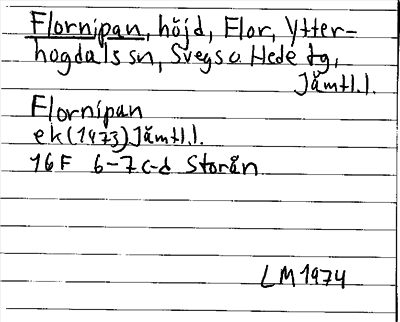 Flornipan, höjd, Flor, Ytter-
hogdals sn, Svegs o. Hede tg,
Jämtl.l.
Flornipan
ek (1973) Jämtl.l.
16F 6-7 c-d Storån
LM 1974